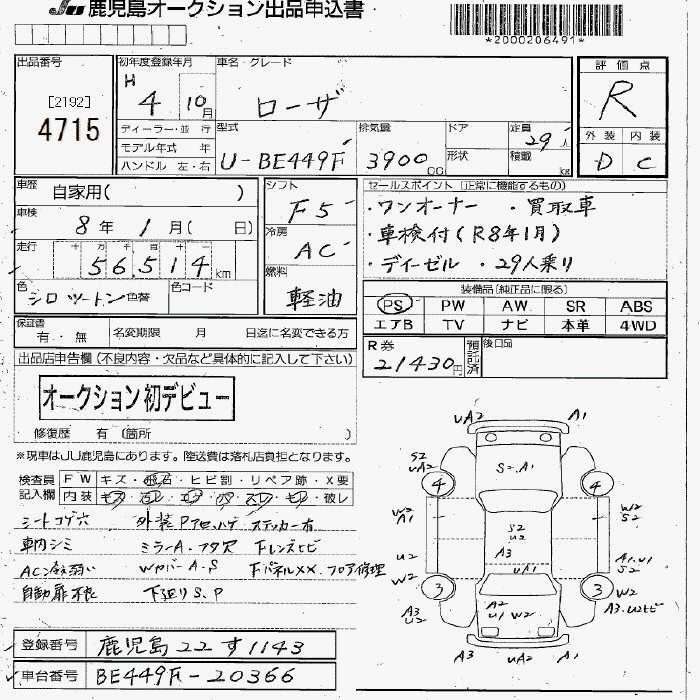 JU 鹿児島オークション出品申込書
*2000206491*
出品番号
[2192]
4715
初年度登録年月
H 4 10月
車名・グレード
ローザ
評価点
R
外装 内装
D C
ディーラー・並行
モデル年式 年
ハンドル 左・右
型式
U-BE449F
排気量
3900 cc
ドア
形状
定員
29人
積載
kg
車歴
自家用( )
車検
8年 1月( 日)
走行
十 万 千 百 十 一
56,514 km
色
シロツートン 色替
色コード
シフト
F5
冷房
AC
燃料
軽油
セールスポイント (正常に機能するもの)
・ワンオーナー ・買取車
・車検付(R8年1月)
・ディーゼル ・29人乗り
装備品(純正品に限る)
PS PW AW SR ABS
エアB TV ナビ 本革 4WD
保証書
有・無
名変期限 月 日迄に名変できる方
R券
21430円
預託済
後日品
出品店申告欄(不良内容・欠品など具体的に記入して下さい)
オークション初デビュー
修復歴 有 (箇所 )
※現車はJU鹿児島にあります。陸送費は落札店負担となります。
検査員記入欄
FW キズ・飛石・ヒビ割・リペア跡・X要
内装 キズ・ヨレ・・・スレ・・破レ
シートコゲ穴 外装Pアセ、ハゲ ステッカー有
車内シミ ミラーA・フタ欠 Fレンズヒビ
AC冷弱い WカバーA・S FパネルXX、フロア修理
自動扉不良 下廻りS、P
登録番号 鹿児島22す1143
車台番号 BE449F-20366
UA2 A1
S2 UA2
S2、A1
4 4
W2 A1
W2 S2
S2 U2
A3
UA1
U2
A1、U1 S2
W2
3 3
W2
A3 U2
A3、U2ヒビ
A2
U1 W2
A3 UA2 A1